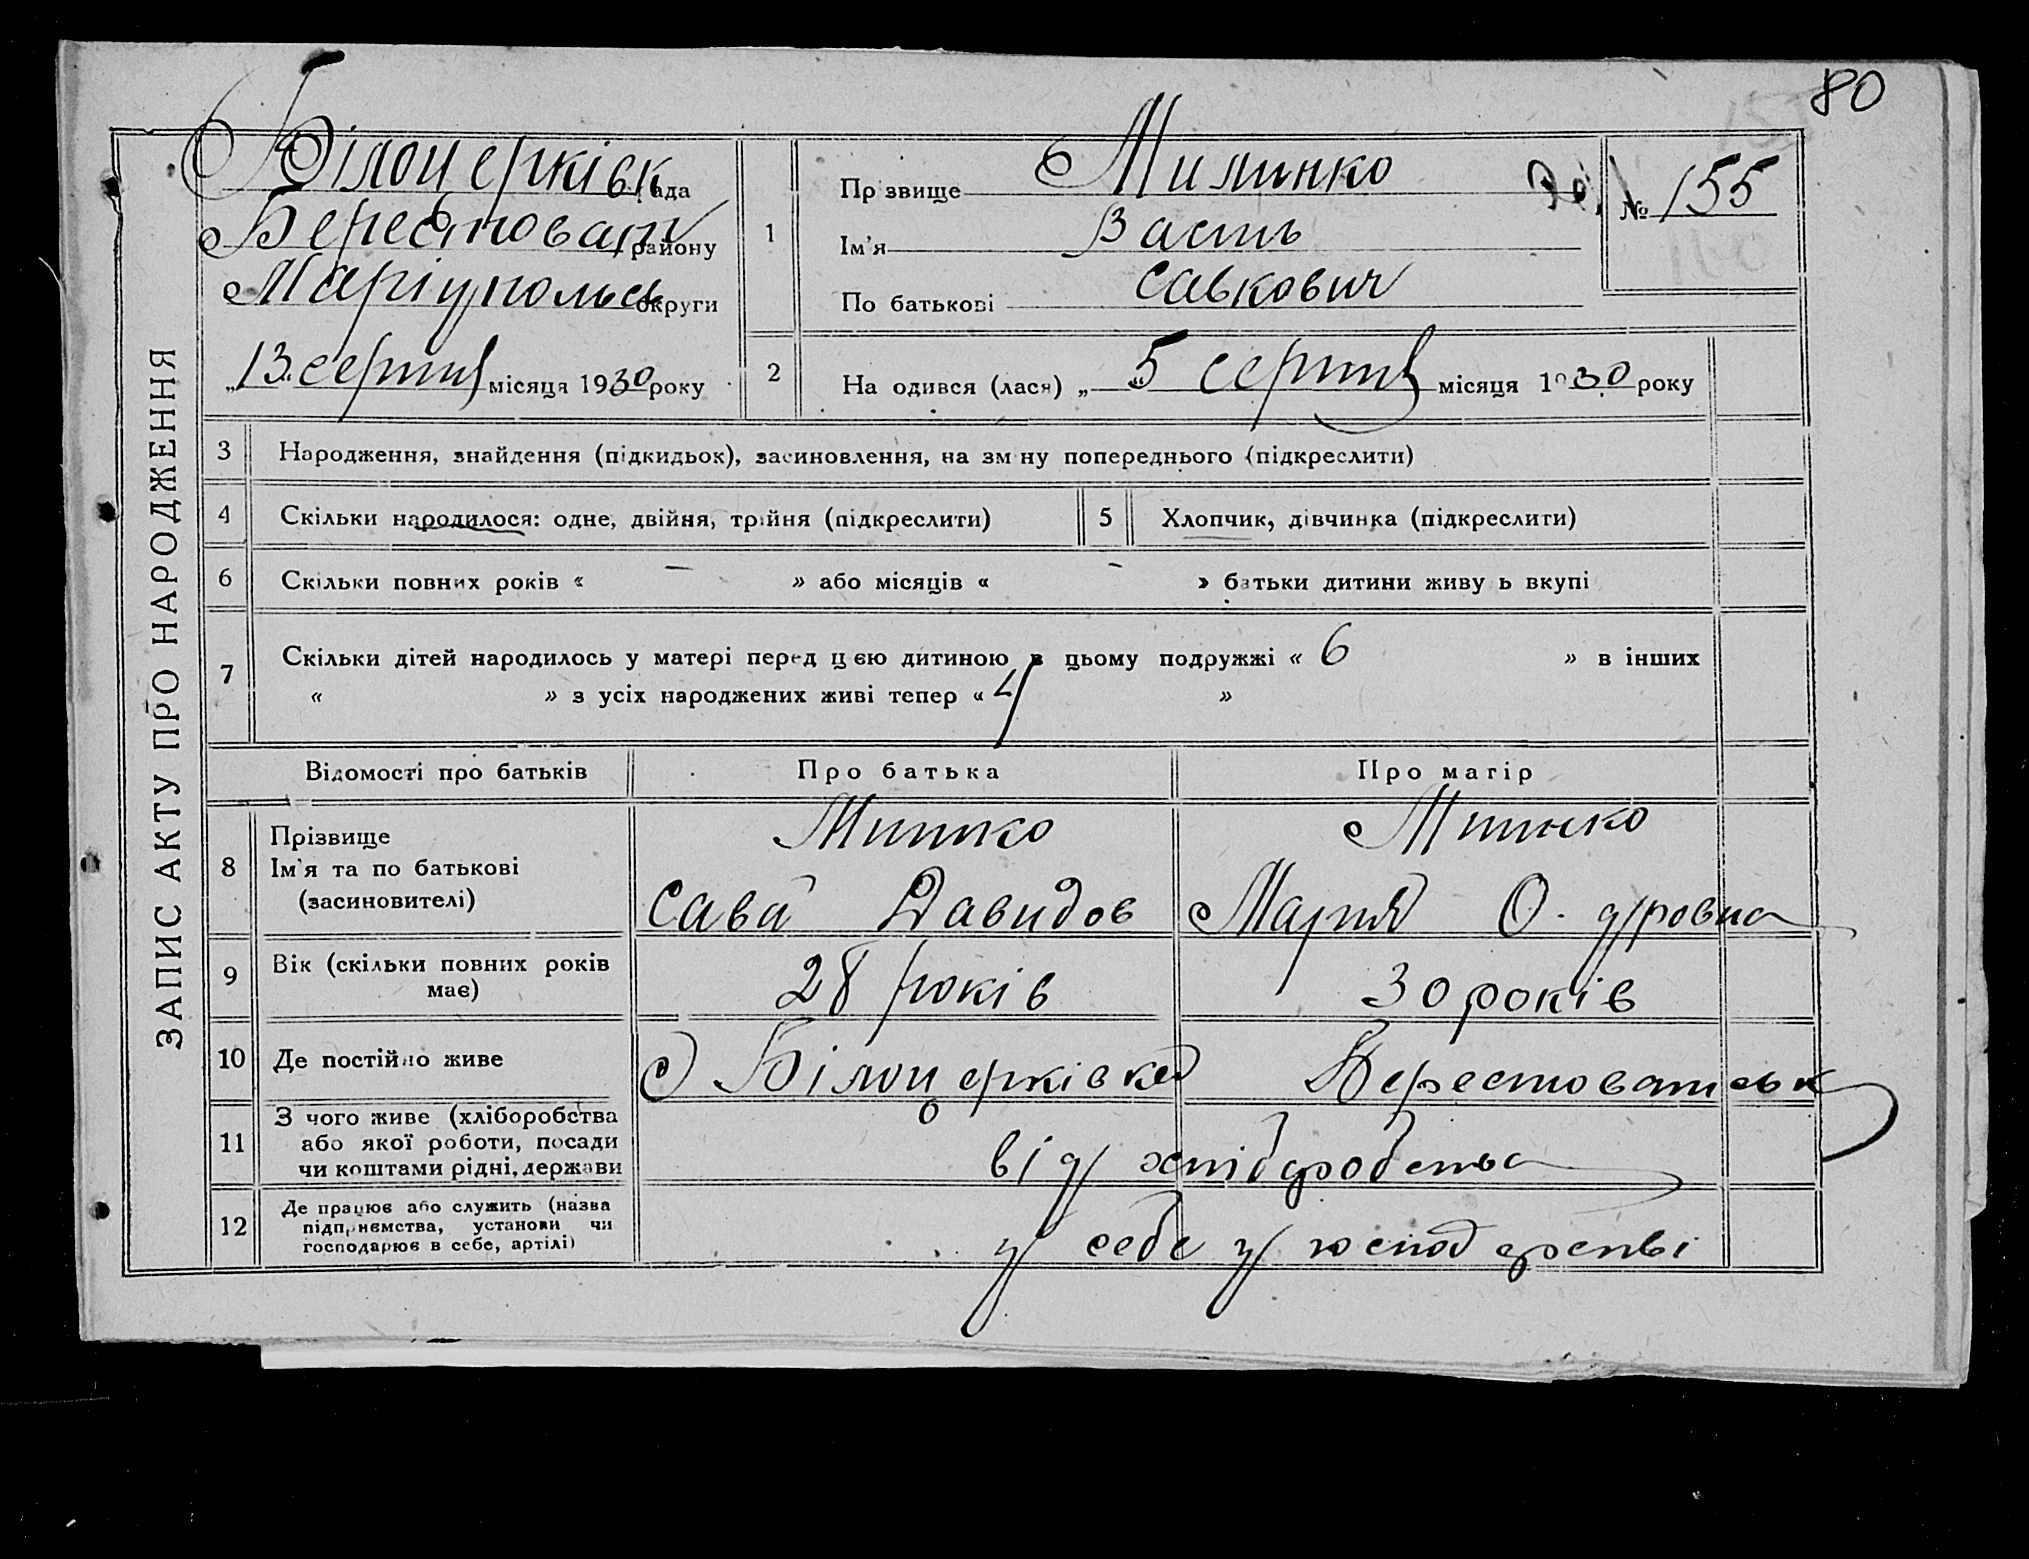 80
ЗАПИС АКТУ ПРО НАРОДЖЕННЯ
Білоцерківк рада
Берестоват району
Маріупольськ округи
„13„ серпня місяця 1930 року
1
Прізвище
Ім'я Василь
По батькові Савкович
№ 155
2
На одився (лася) „ 5 „ серпня місяця 1930 року
3 Народження, знайдення (підкидьок), засиновлення, на зм ну попереднього (підкреслити)
4 Скільки народилося: одне, двійня, трійня (підкреслити)
5 Хлопчик, дівчинка (підкреслити)
6 Скільки повних років « — » або місяців « — » батьки дитини живу ь вкупі
7 Скільки дітей народилось у матері перед цією дитиною в цьому подружжі « 6 » в інших
« » з усіх народжених живі тепер « 4 »
Відомості про батьків Про батька Про матір
8 Прізвище
Ім'я та по батькові
(засиновителі)
Минко Минко
Сава Давидов Мария
9 Вік (скільки повних років
має)
28 років 30 років
10 Де постійно живе
с Білоцерківка Берестоватськ
11 З чого живе (хліборобства
або якої роботи, посади
чи коштами рідні, держави
від хліборобства
12 Де працює або служить (назва
підприємства, установи чи
господарює в себе, артілі)
у себе у господарстві